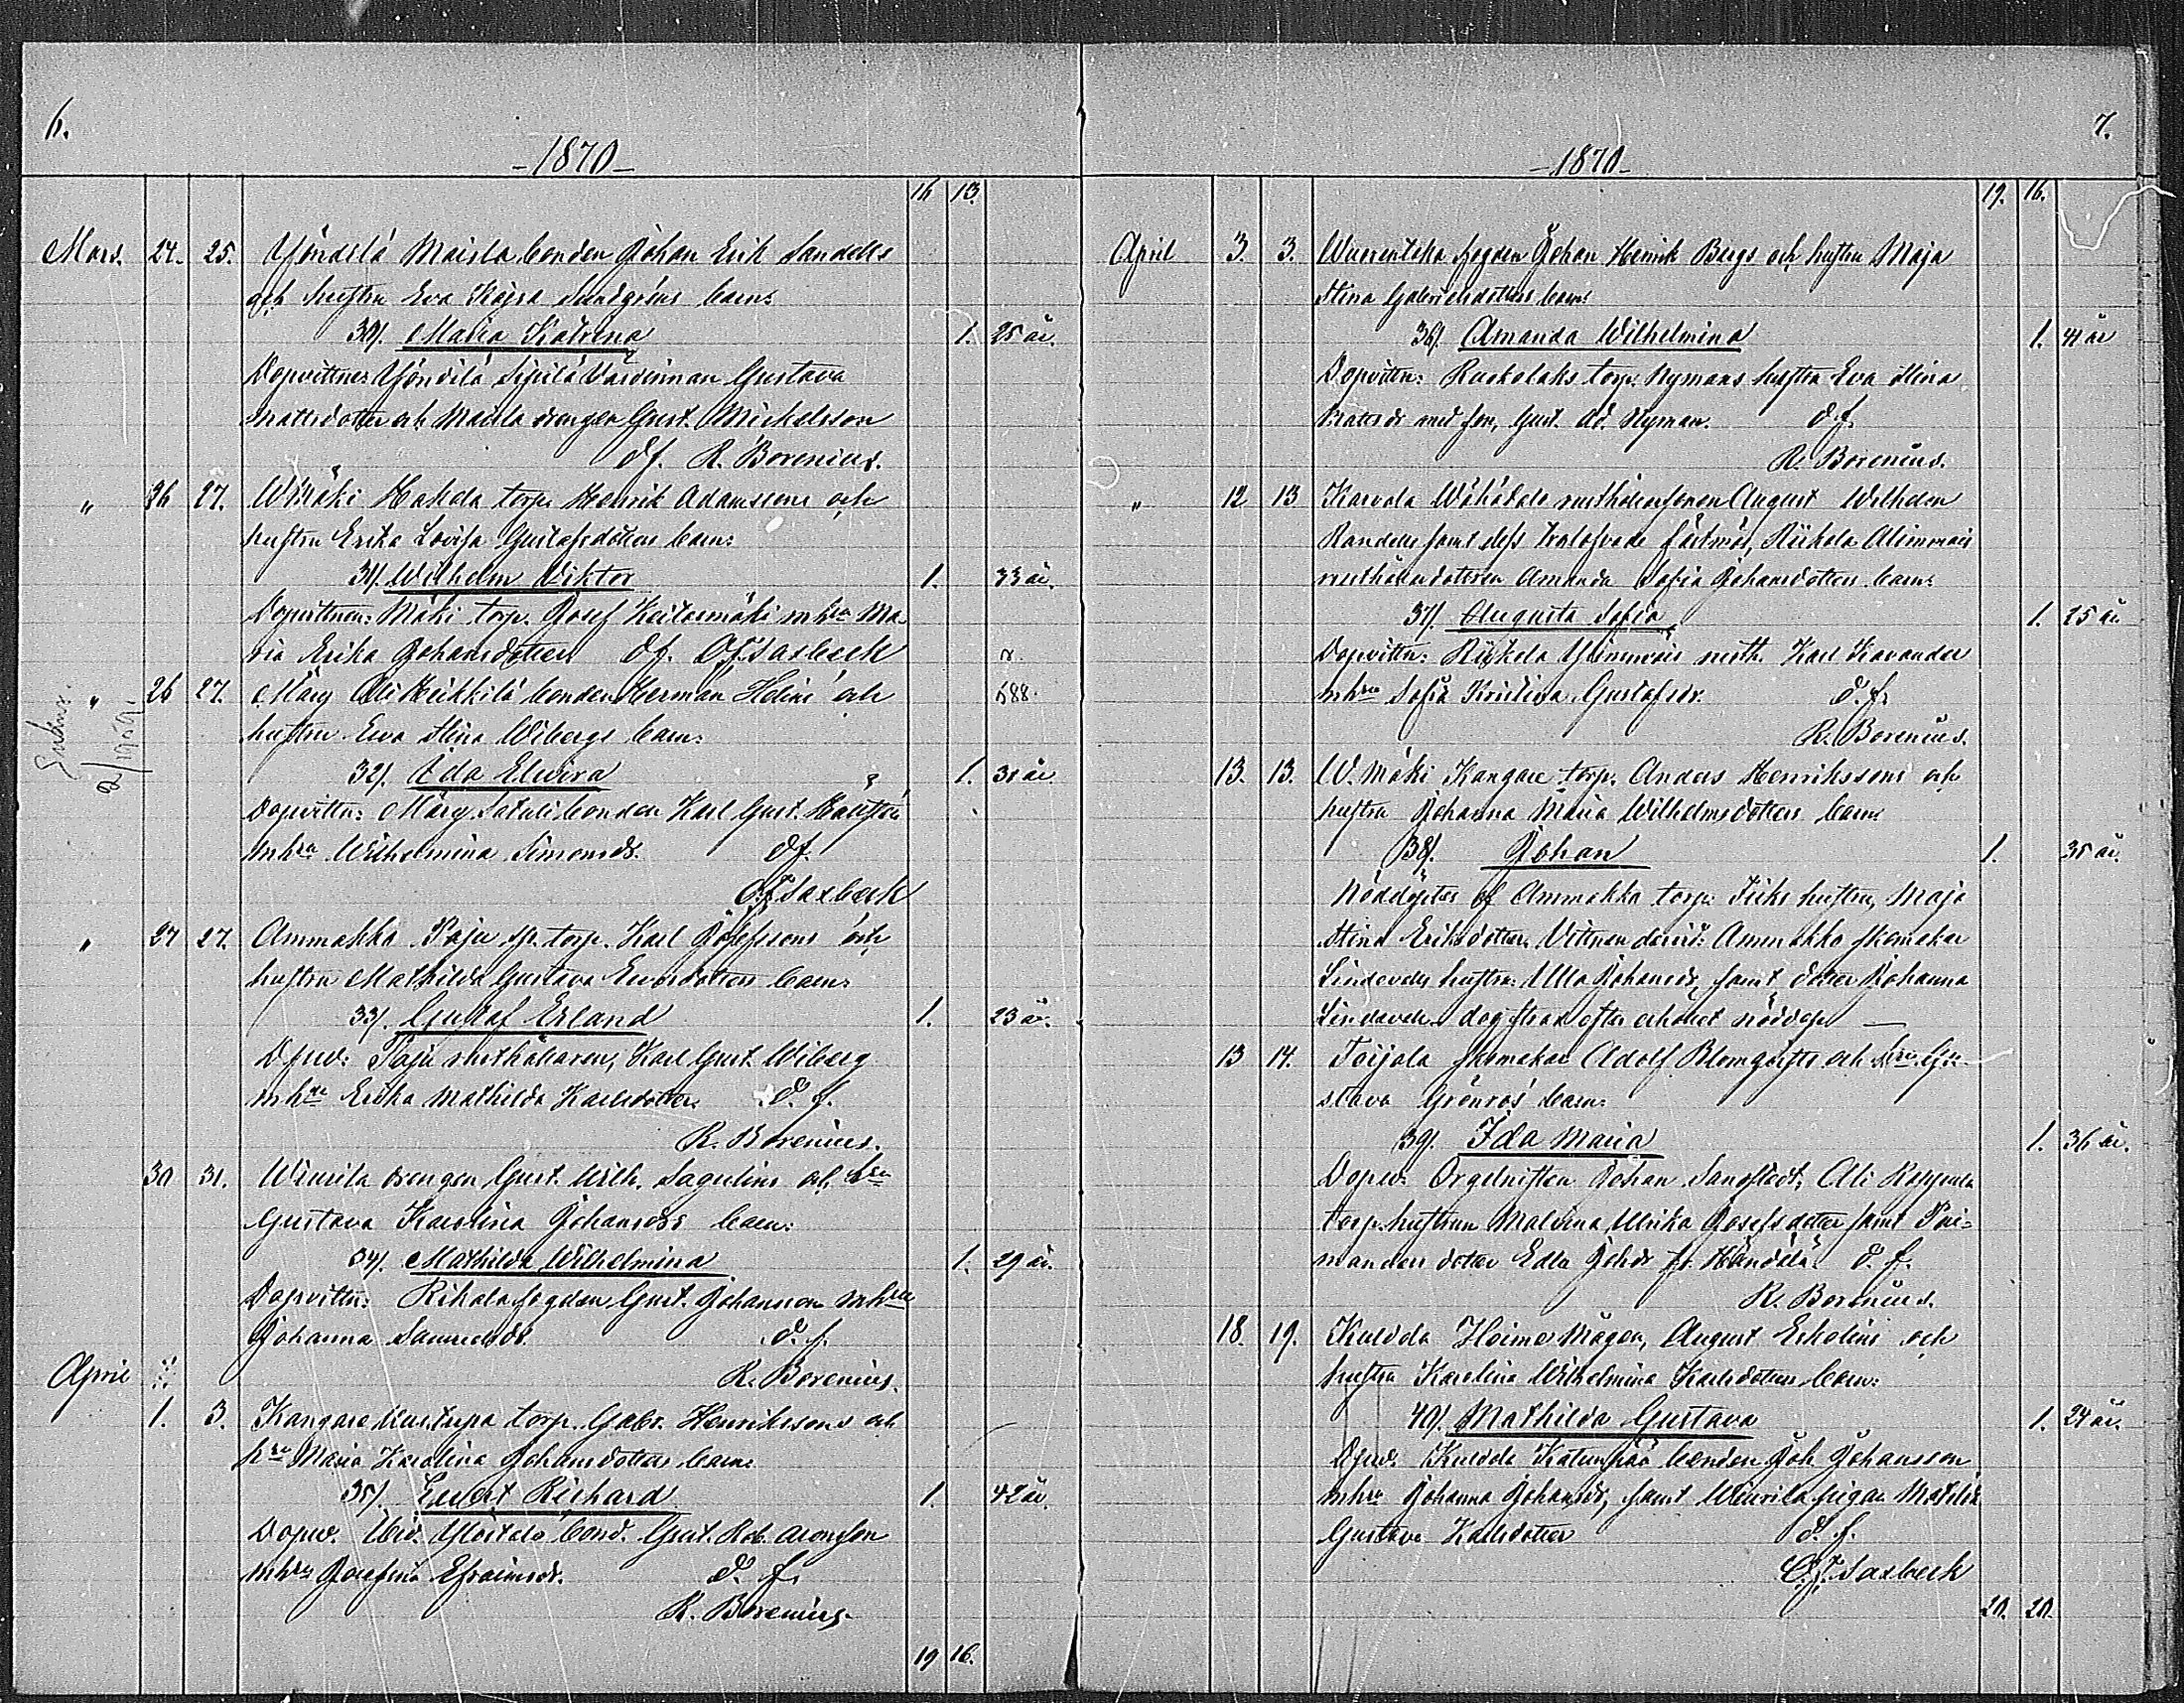 6.
-1870-
16 13.
Mars. 24. 25. Yöndilä Maisla bonden Johan Erik Sandells
och hustru Eva Kajsa Sundgréns barn:
30). Maria Katrina 1. 25 år.
Dopvittnen Yöndilä Sipilä Värdinnan Gustava
Mattsdotter och Maisla drengen Gust. Michelsson
d.f. R. Borenius.
" 26 27. W. Mäki Hakala torp. Henrik Adamssons och
hustru Erika Lovisa Gustafsdotters barn:
31). Wilhelm Viktor 1. 33 år.
Dopvittnen: Mäki torp. Josef Keitasmäki mhru Ma-
ria Erika Johansdotter d.f. Saxbeck
" 26 27. Märy Ali Heikkilä bonden Herman Helins och
588.
hustru Eva Stina Wibergs barn:
32). Ida Elvira 1. 31 år
Dopvittn: Märy bonden Karl Gust.
mhru Wilhelmina Simonsdr. d.f.
Saxbeck
" 27 27. Ammakka Paju torp. Karl Josefssons och
hustru Mathilda Gustava barn:
33). Gustaf Erland 1. 23 år.
Dopv: Paju rusthållaren, Karl Gust. Wiberg
mhru Erika Mathilda Karlsdotter. d. f.
R. Borenius.
30 31. Winnila drengen Gust. Wilh. Sagulins och hru
Gustava Karolina Johansdrs barn:
34). Mathilda Wilhelmina 1. 29 år.
Dopvittn: Rihala fogden Gust. Johansson mhru
Johanna Samuelsdr. d. f.
R. Borenius.
April
1. 3. Kangare torp. Gabr. Henrikssons och
hru Maria Karolina Johansdotters barn:
35). Evert Richard 1. 42 år.
Dopv. bond. Gust. Rob. Aronsson
mhru Josefina Efraimsdr. d. f.
R. Borenius.
19 16.
7.
-1870-
19. 16.
April 3. 3. Wuorentaka fogden Johan Henrik Bergs och hustru Maja
Stina Gabrielsdotters barn:
36). Amanda Wilhelmina 1. 41 år
Dopvittn: Ruskolaks torp. Nymans hustru Eva Stina
Mattsdr med son, Gust. Ad. Nyman. d.f.
R. Borenius.
" 12 13 Karvola rusthållaresonen August Wilhelm
Randells samt dess trolofvade fästmö, Riihela Alimmais
rusthållaredottren Amanda Sofia Johansdotters barn:
37). Augusta Sofia 1. 25 år
Dopvittn: Riihela rusth. Karl Kavander
mhru Sofia Kristina Gustafsdr. d.f.
R. Borenius.
13. 13. W. Mäki Kangare torp. Anders Henrikssons och
hustru Johanna Maria Wilhelmsdotters barn:
38). Johan 1. 35 år.
Nöddöptes af Ammakka torp. hustru, Maja
Stina Eriksdotter. Vittnen dervid: Ammakka skomakar
Lindevalls hustru: Ulla Johansdr, samt dotter Johanna
Lindevall. dog strax efter erhållet nöddop —
13 14. Toijala skomakar Adolf Blomqvists och hru Gu-
stava Grönros barn:
39). Ida Maria 1. 36 år.
Dopv: Orgelnisten Johan Sandstedt, Ali
torp. hustrun Malvina Ulrika Josefsdotter samt
dotter Edla Johdr fr. d. f.
R. Borenius.
18. 19. Kuldda Heima Mågen, August Erholins och
hustru Karolina Wilhelmina Karlsdotters barn:
40). Mathilda Gustava 1. 24 år.
Dopv. Kuldda bonden Joh. Johansson
mhru Johanna Johansdr, samt Winnila pigan Matilda
Gustava Karlsdotter d. f.
Saxbeck
20. 20.